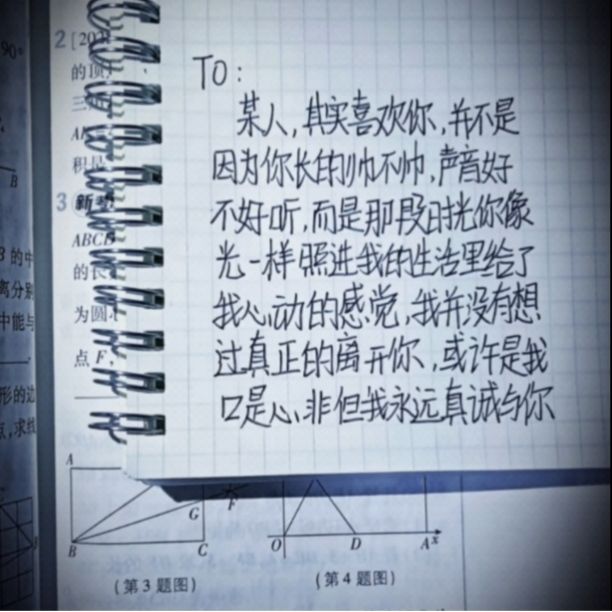 TO:
某人,其实喜欢你,并不是
因为你长的帅不帅,声音好
不好听,而是那段时光你像
光一样照进我的生活里给了
我心动的感觉,我并没有想
过真正的离开你,或许是我
口是心非但我永远真诚与你
90°
2 [202
的顶
积是
B
3 新考
ABCD
的长
为圆心
点 F,
B 的中
离分别
中能与
形的边
点,求线
A
B
C
G
F
O
D
A
x
(第3题图)
(第4题图)